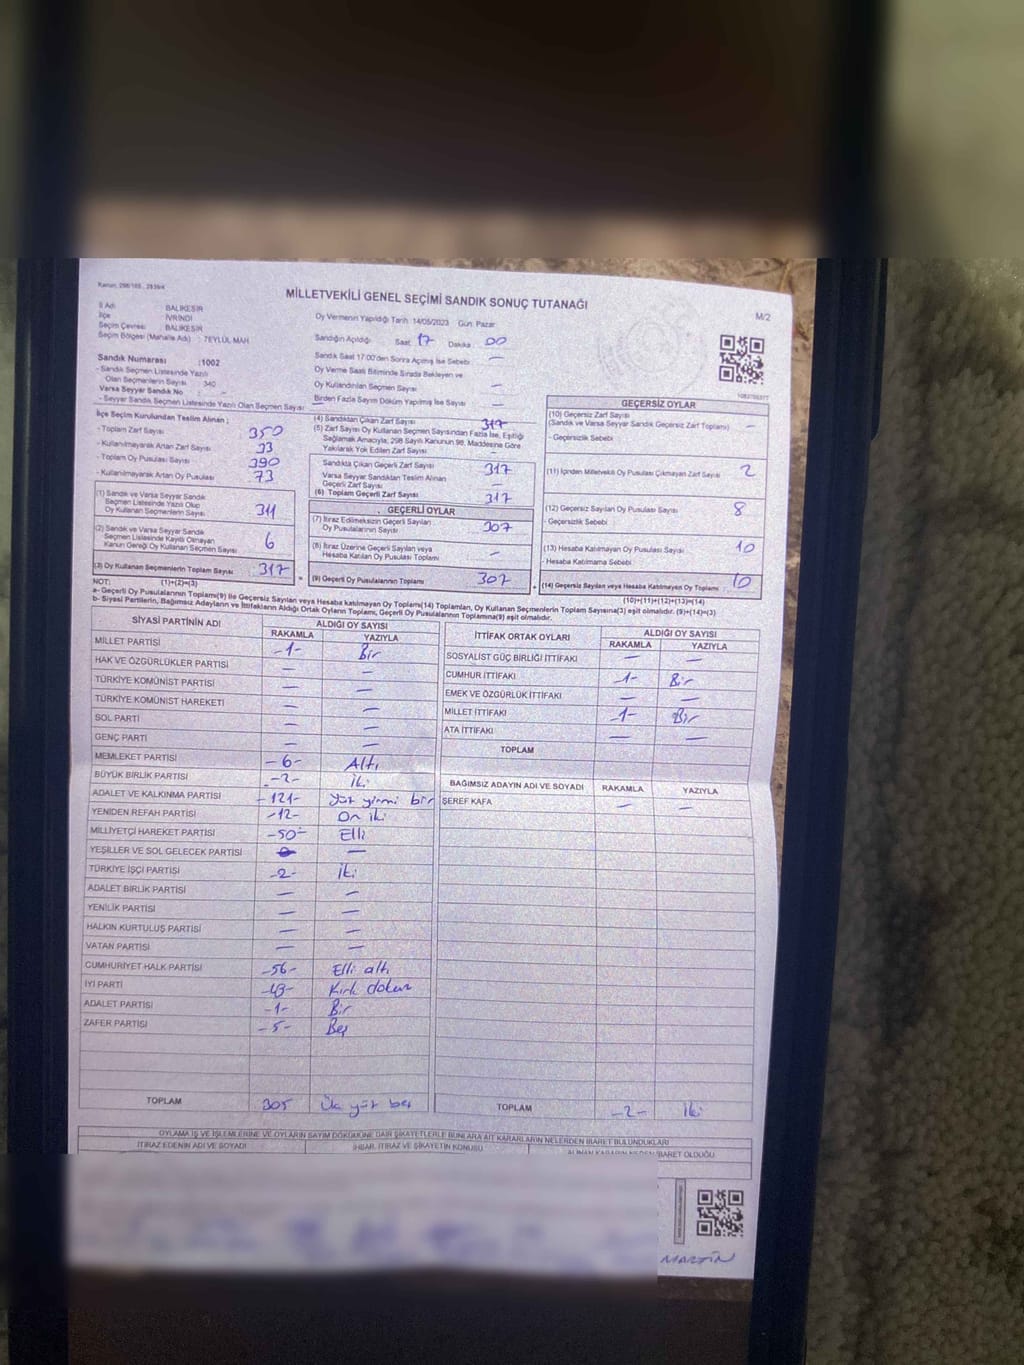 Kanun: 298/105 , 2839/4
MİLLETVEKİLİ GENEL SEÇİMİ SANDIK SONUÇ TUTANAĞI
M/2
İl Adı : BALIKESİR
İlçe : İVRİNDİ
Seçim Çevresi : BALIKESİR
Seçim Bölgesi (Mahalle Adı) : 7EYLÜL MAH.
Oy Vermenin Yapıldığı Tarih: 14/05/2023 Gün: Pazar
Sandığın Açıldığı Saat 17 Dakika 00
Sandık Saat 17:00'den Sonra Açılmış İse Sebebi —
Oy Verme Saati Bitiminde Sırada Bekleyen ve
Oy Kullandırılan Seçmen Sayısı —
Birden Fazla Sayım Döküm Yapılmış İse Sayısı —
Sandık Numarası :1002
- Sandık Seçmen Listesinde Yazılı
Olan Seçmenlerin Sayısı 340
Varsa Seyyar Sandık No : -
- Seyyar Sandık Seçmen Listesinde Yazılı Olan Seçmen Sayısı: —
İlçe Seçim Kurulundan Teslim Alınan ;
- Toplam Zarf Sayısı 350
- Kullanılmayarak Artan Zarf Sayısı 33
- Toplam Oy Pusulası Sayısı 390
- Kullanılmayarak Artan Oy Pusulası 73
(1) Sandık ve Varsa Seyyar Sandık
Seçmen Listesinde Yazılı Olup
Oy Kullanan Seçmen Sayısı 311
(2) Sandık ve Varsa Seyyar Sandık
Seçmen Listesinde Kayıtlı Olmayan
Kanun Gereği Oy Kullanan Seçmen Sayısı 6
(3) Oy Kullanan Seçmenlerin Toplam Sayısı 317
(1)+(2)=(3)
(4) Sandıktan Çıkan Zarf Sayısı 317
(5) Zarf Sayısı Oy Kullanan Seçmen Sayısından Fazla İse, Eşitliği
Sağlamak Amacıyla, 298 Sayılı Kanunun 98. Maddesine Göre
Yakılarak Yok Edilen Zarf Sayısı —
Sandıkta Çıkan Geçerli Zarf Sayısı 317
Varsa Seyyar Sandıktan Teslim Alınan
Geçerli Zarf Sayısı —
(6) Toplam Geçerli Zarf Sayısı 317
GEÇERLİ OYLAR
(7) İtiraz Edilmeksizin Geçerli Sayılan
Oy Pusulalarının Sayısı 307
(8) İtiraz Üzerine Geçerli Sayılan veya
Hesaba Katılan Oy Pusulası Toplamı —
(9) Geçerli Oy Pusulalarının Toplamı 307
GEÇERSİZ OYLAR
(10) Geçersiz Zarf Sayısı
(Sandık ve Varsa Seyyar Sandık Geçersiz Zarf Toplamı) —
- Geçersizlik Sebebi
(11) İçinden Milletvekili Oy Pusulası Çıkmayan Zarf Sayısı 2
(12) Geçersiz Sayılan Oy Pusulası Sayısı 8
- Geçersizlik Sebebi
(13) Hesaba Katılmayan Oy Pusulası Sayısı 10
Hesaba Katılmama Sebebi
(14) Geçersiz Sayılan veya Hesaba Katılmayan Oy Toplamı 10
(10)+(11)+(12)+(13)=(14)
NOT:
a- Geçerli Oy Pusulalarının Toplamı(9) ile Geçersiz Sayılan veya Hesaba katılmayan Oy Toplamı(14) Toplamları, Oy Kullanan Seçmenlerin Toplam Sayısına(3) eşit olmalıdır. (9)+(14)=(3)
b- Siyasi Partilerin, Bağımsız Adayların ve İttifakların Aldığı Ortak Oyların Toplamı, Geçerli Oy Pusulalarının Toplamına(9) eşit olmalıdır.
SİYASİ PARTİNİN ADI ALDIĞI OY SAYISI
RAKAMLA YAZIYLA
MİLLET PARTİSİ -1- Bir
HAK VE ÖZGÜRLÜKLER PARTİSİ — —
TÜRKİYE KOMÜNİST PARTİSİ — —
TÜRKİYE KOMÜNİST HAREKETİ — —
SOL PARTİ — —
GENÇ PARTİ — —
MEMLEKET PARTİSİ -6- Altı
BÜYÜK BİRLİK PARTİSİ -2- İki
ADALET VE KALKINMA PARTİSİ -121- Yüz yirmi bir
YENİDEN REFAH PARTİSİ -12- On iki
MİLLİYETÇİ HAREKET PARTİSİ -50- Elli
YEŞİLLER VE SOL GELECEK PARTİSİ —
TÜRKİYE İŞÇİ PARTİSİ -2- İki
ADALET BİRLİK PARTİSİ — —
YENİLİK PARTİSİ — —
HALKIN KURTULUŞ PARTİSİ — —
VATAN PARTİSİ — —
CUMHURİYET HALK PARTİSİ -56- Elli altı
İYİ PARTİ -49- Kırk dokuz
ADALET PARTİSİ -1- Bir
ZAFER PARTİSİ -5- Beş
TOPLAM 305 Üç yüz beş
İTTİFAK ORTAK OYLARI ALDIĞI OY SAYISI
RAKAMLA YAZIYLA
SOSYALİST GÜÇ BİRLİĞİ İTTİFAKI — —
CUMHUR İTTİFAKI -1- Bir
EMEK VE ÖZGÜRLÜK İTTİFAKI — —
MİLLET İTTİFAKI -1- Bir
ATA İTTİFAKI — —
TOPLAM
BAĞIMSIZ ADAYIN ADI VE SOYADI RAKAMLA YAZIYLA
ŞEREF KAFA — —
TOPLAM -2- İki
OYLAMA İŞ VE İŞLEMLERİNE VE OYLARIN SAYIM DÖKÜMÜNE DAİR ŞİKAYETLERLE BUNLARA AİT KARARLARIN NELERDEN İBARET BULUNDUKLARI
İTİRAZ EDENİN ADI VE SOYADI İHBAR, İTİRAZ VE ŞİKAYETİN KONUSU ALINAN KARARIN NEDEN İBARET OLDUĞU
MARTİN